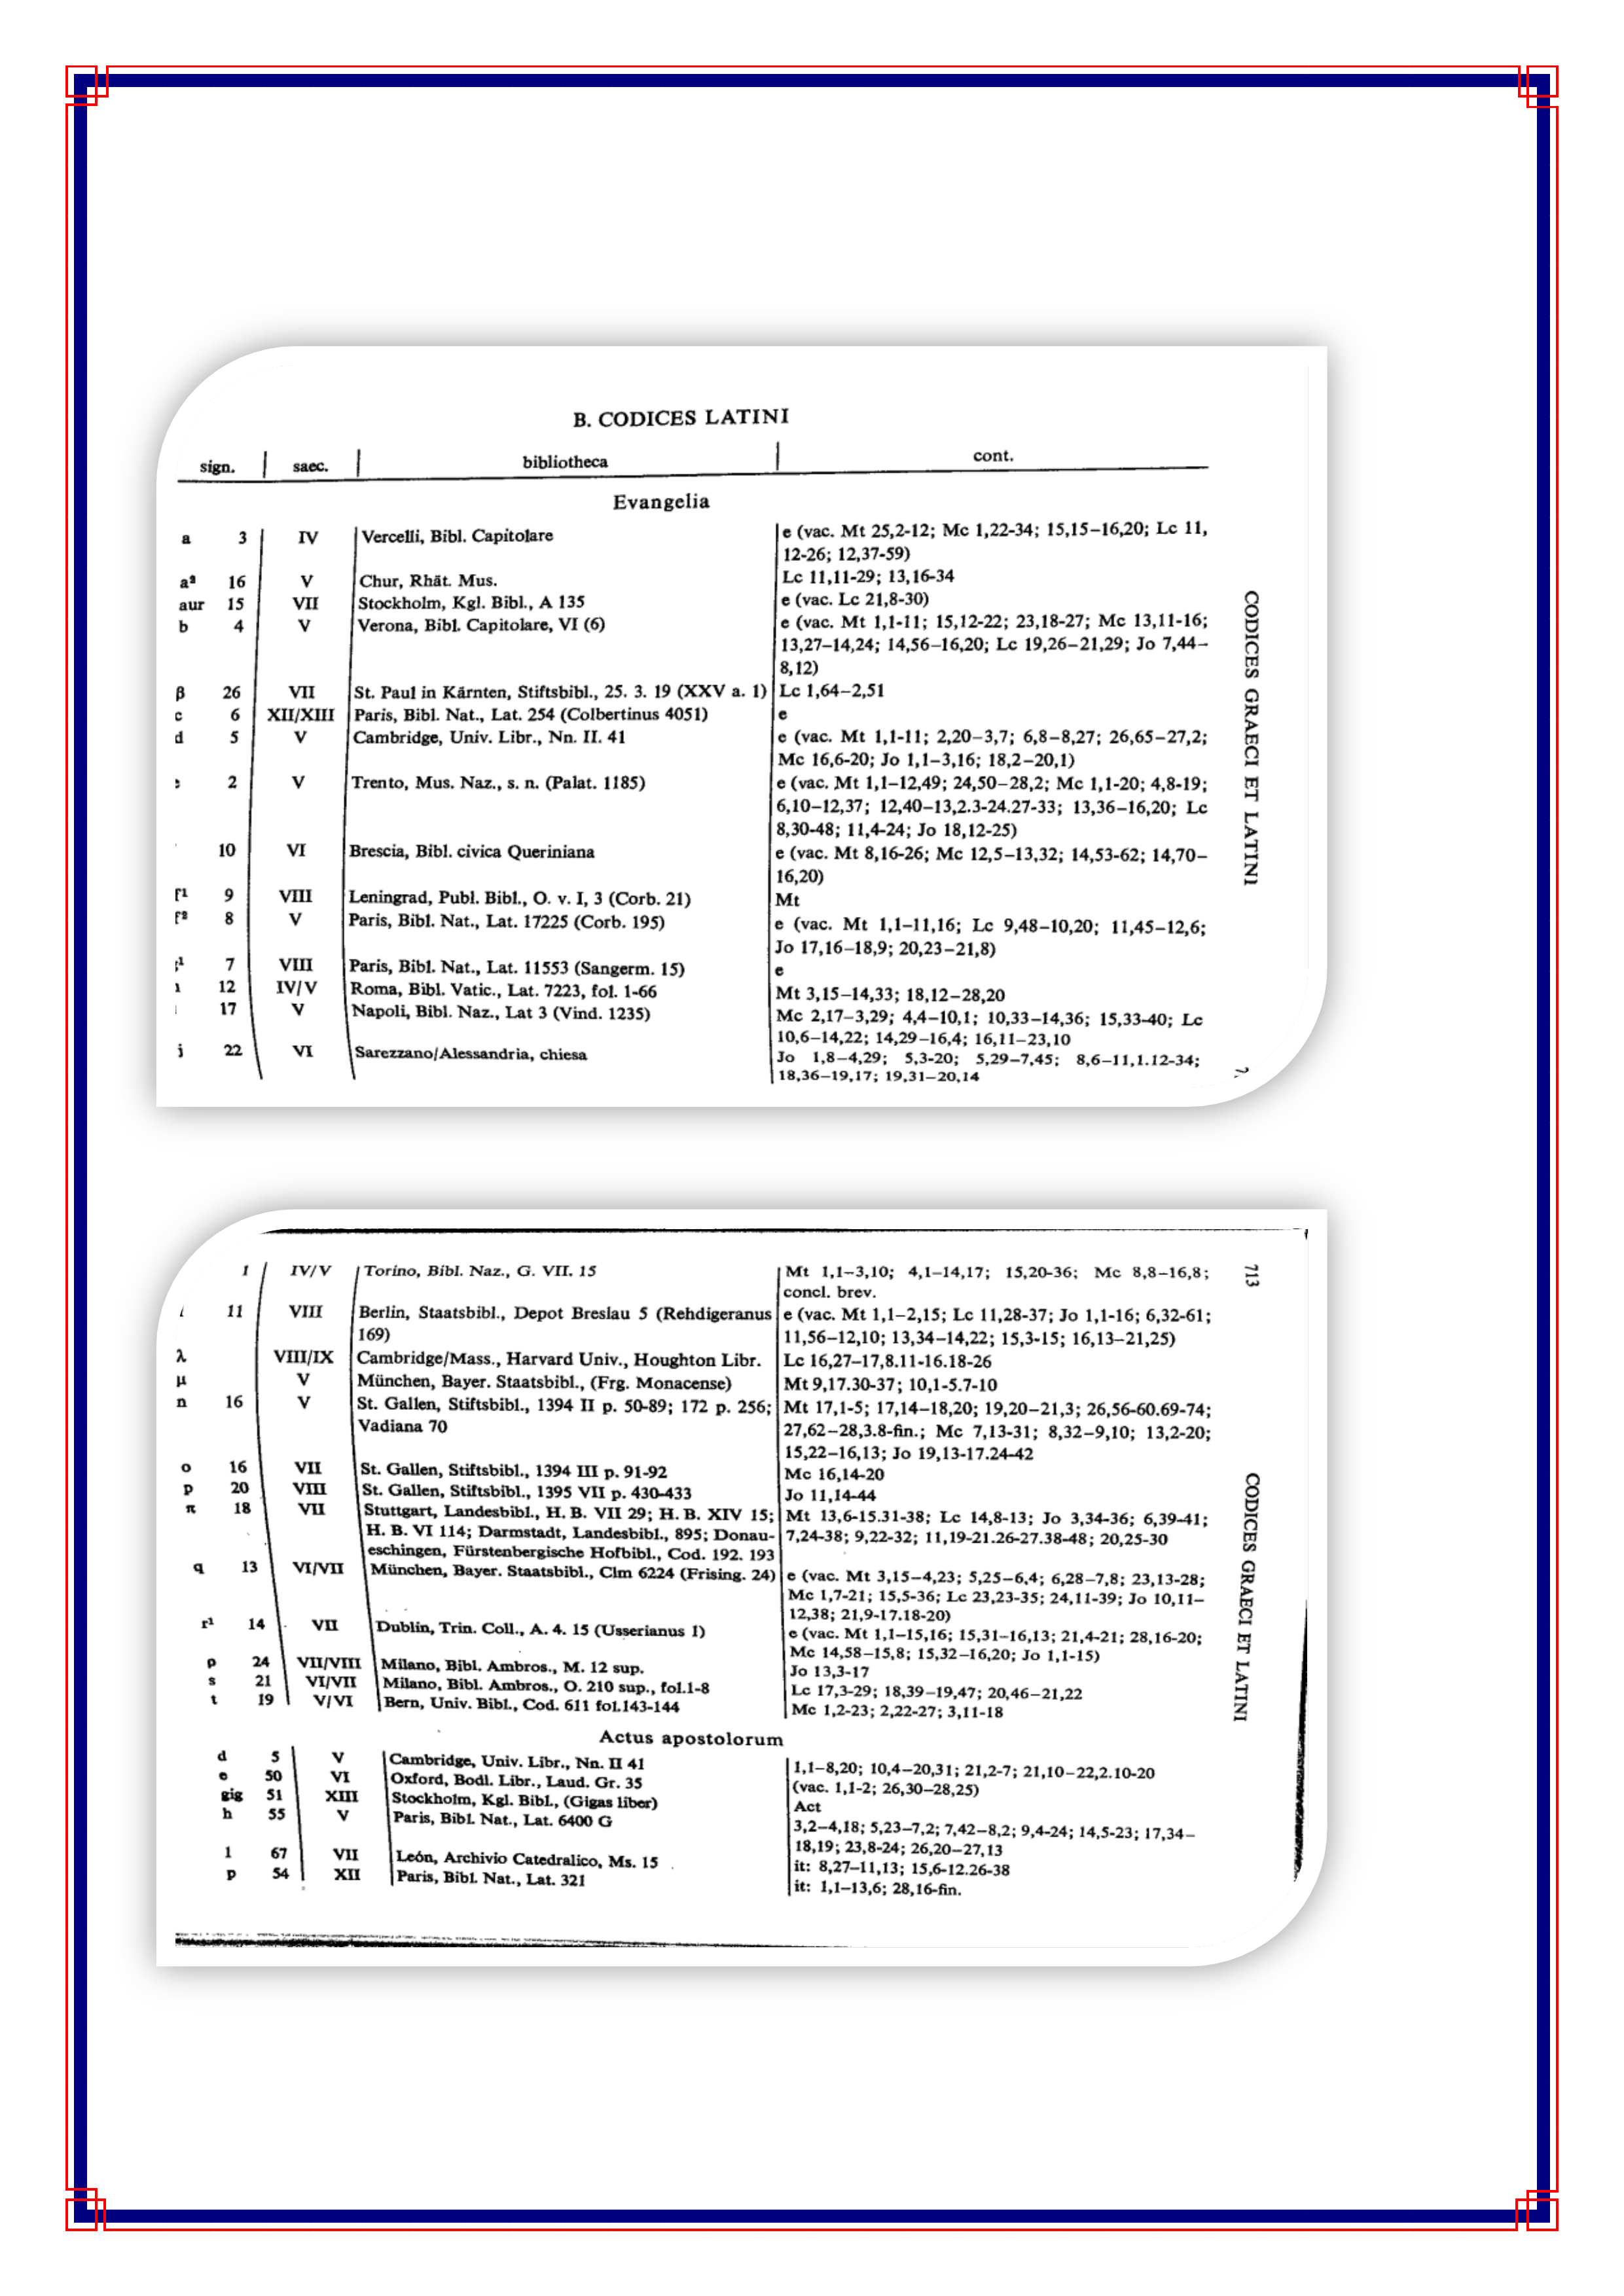 B. CODICES LATINI
sign. saec. bibliotheca cont.
Evangelia
a 3 IV Vercelli, Bibl. Capitolare e (vac. Mt 25,2-12; Mc 1,22-34; 15,15–16,20; Lc 11,
12-26; 12,37-59)
a² 16 V Chur, Rhät. Mus. Lc 11,11-29; 13,16-34
aur 15 VII Stockholm, Kgl. Bibl., A 135 e (vac. Lc 21,8-30)
b 4 V Verona, Bibl. Capitolare, VI (6) e (vac. Mt 1,1-11; 15,12-22; 23,18-27; Mc 13,11-16;
13,27–14,24; 14,56–16,20; Lc 19,26–21,29; Jo 7,44–
8,12)
β 26 VII St. Paul in Kärnten, Stiftsbibl., 25. 3. 19 (XXV a. 1) Lc 1,64–2,51
c 6 XII/XIII Paris, Bibl. Nat., Lat. 254 (Colbertinus 4051) e
d 5 V Cambridge, Univ. Libr., Nn. II. 41 e (vac. Mt 1,1-11; 2,20–3,7; 6,8–8,27; 26,65–27,2;
Mc 16,6-20; Jo 1,1–3,16; 18,2–20,1)
2 V Trento, Mus. Naz., s. n. (Palat. 1185) e (vac. Mt 1,1–12,49; 24,50–28,2; Mc 1,1-20; 4,8-19;
6,10–12,37; 12,40–13,2.3-24.27-33; 13,36–16,20; Lc
8,30-48; 11,4-24; Jo 18,12-25)
10 VI Brescia, Bibl. civica Queriniana e (vac. Mt 8,16-26; Mc 12,5–13,32; 14,53-62; 14,70–
16,20)
f¹ 9 VIII Leningrad, Publ. Bibl., O. v. I, 3 (Corb. 21) Mt
f² 8 V Paris, Bibl. Nat., Lat. 17225 (Corb. 195) e (vac. Mt 1,1–11,16; Lc 9,48–10,20; 11,45–12,6;
Jo 17,16–18,9; 20,23–21,8)
7 VIII Paris, Bibl. Nat., Lat. 11553 (Sangerm. 15) e
12 IV/V Roma, Bibl. Vatic., Lat. 7223, fol. 1-66 Mt 3,15–14,33; 18,12–28,20
17 V Napoli, Bibl. Naz., Lat 3 (Vind. 1235) Mc 2,17–3,29; 4,4–10,1; 10,33–14,36; 15,33-40; Lc
10,6–14,22; 14,29–16,4; 16,11–23,10
j 22 VI Sarezzano/Alessandria, chiesa Jo 1,8–4,29; 5,3-20; 5,29–7,45; 8,6–11,1.12-34;
18,36–19,17; 19,31–20,14
CODICES GRAECI ET LATINI
1 IV/V Torino, Bibl. Naz., G. VII. 15 Mt 1,1–3,10; 4,1–14,17; 15,20-36; Mc 8,8–16,8;
concl. brev.
11 VIII Berlin, Staatsbibl., Depot Breslau 5 (Rehdigeranus e (vac. Mt 1,1–2,15; Lc 11,28-37; Jo 1,1-16; 6,32-61;
169) 11,56–12,10; 13,34–14,22; 15,3-15; 16,13–21,25)
λ VIII/IX Cambridge/Mass., Harvard Univ., Houghton Libr. Lc 16,27–17,8.11-16.18-26
μ V München, Bayer. Staatsbibl., (Frg. Monacense) Mt 9,17.30-37; 10,1-5.7-10
n 16 V St. Gallen, Stiftsbibl., 1394 II p. 50-89; 172 p. 256; Mt 17,1-5; 17,14–18,20; 19,20–21,3; 26,56-60.69-74;
Vadiana 70 27,62–28,3.8-fin.; Mc 7,13-31; 8,32–9,10; 13,2-20;
15,22–16,13; Jo 19,13-17.24-42
o 16 VII St. Gallen, Stiftsbibl., 1394 III p. 91-92 Mc 16,14-20
p 20 VIII St. Gallen, Stiftsbibl., 1395 VII p. 430-433 Jo 11,14-44
π 18 VII Stuttgart, Landesbibl., H. B. VII 29; H. B. XIV 15; Mt 13,6-15.31-38; Lc 14,8-13; Jo 3,34-36; 6,39-41;
H. B. VI 114; Darmstadt, Landesbibl., 895; Donau- 7,24-38; 9,22-32; 11,19-21.26-27.38-48; 20,25-30
eschingen, Fürstenbergische Hofbibl., Cod. 192. 193
q 13 VI/VII München, Bayer. Staatsbibl., Clm 6224 (Frising. 24) e (vac. Mt 3,15–4,23; 5,25–6,4; 6,28–7,8; 23,13-28;
Mc 1,7-21; 15,5-36; Lc 23,23-35; 24,11-39; Jo 10,11–
12,38; 21,9-17.18-20)
r¹ 14 VII Dublin, Trin. Coll., A. 4. 15 (Usserianus 1) e (vac. Mt 1,1–15,16; 15,31–16,13; 21,4-21; 28,16-20;
Mc 14,58–15,8; 15,32–16,20; Jo 1,1-15)
p 24 VII/VIII Milano, Bibl. Ambros., M. 12 sup. Jo 13,3-17
s 21 VI/VII Milano, Bibl. Ambros., O. 210 sup., fol.1-8 Lc 17,3-29; 18,39–19,47; 20,46–21,22
t 19 V/VI Bern, Univ. Bibl., Cod. 611 fol.143-144 Mc 1,2-23; 2,22-27; 3,11-18
Actus apostolorum
d 5 V Cambridge, Univ. Libr., Nn. II 41 1,1–8,20; 10,4–20,31; 21,2-7; 21,10–22,2.10-20
e 50 VI Oxford, Bodl. Libr., Laud. Gr. 35 (vac. 1,1-2; 26,30–28,25)
gig 51 XIII Stockholm, Kgl. Bibl., (Gigas liber) Act
h 55 V Paris, Bibl. Nat., Lat. 6400 G 3,2–4,18; 5,23–7,2; 7,42–8,2; 9,4-24; 14,5-23; 17,34–
18,19; 23,8-24; 26,20–27,13
l 67 VII León, Archivio Catedralico, Ms. 15 it: 8,27–11,13; 15,6-12.26-38
p 54 XII Paris, Bibl. Nat., Lat. 321 it: 1,1–13,6; 28,16-fin.
713
CODICES GRAECI ET LATINI